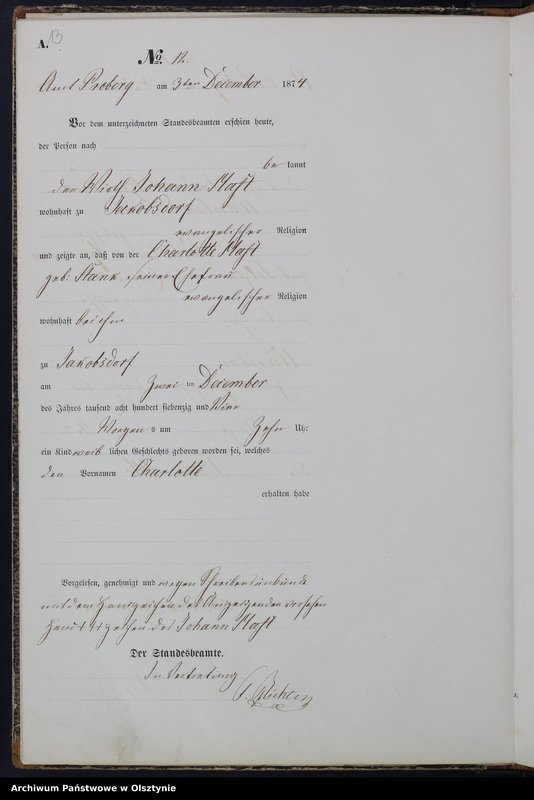 A. 13
No. 12.
Amt Proberg am 3ten December 1874
Vor dem unterzeichneten Standesbeamten erschien heute,
der Person nach
be kannt
den Wirth Johann
wohnhaft zu Jakobsdorf
evangelischer Religion
und zeigte an, daß von der Charlotte
geb: seiner Ehefrau
evangelischer Religion
wohnhaft bei ihm
zu Jakobsdorf
am Zwei ten December
des Jahres tausend acht hundert siebenzig und Vier
Morgen s um Zehn Uhr
ein Kind weib lichen Geschlechts geboren worden sei, welches
den Vornamen Charlotte
erhalten habe
Vorgelesen, genehmigt und wegen Schreibensunkunde
mit dem Handzeichen des Anzeigenden versehen
Handzeichen des Johann
Der Standesbeamte.
In Vertretung
Archiwum Państwowe w Olsztynie